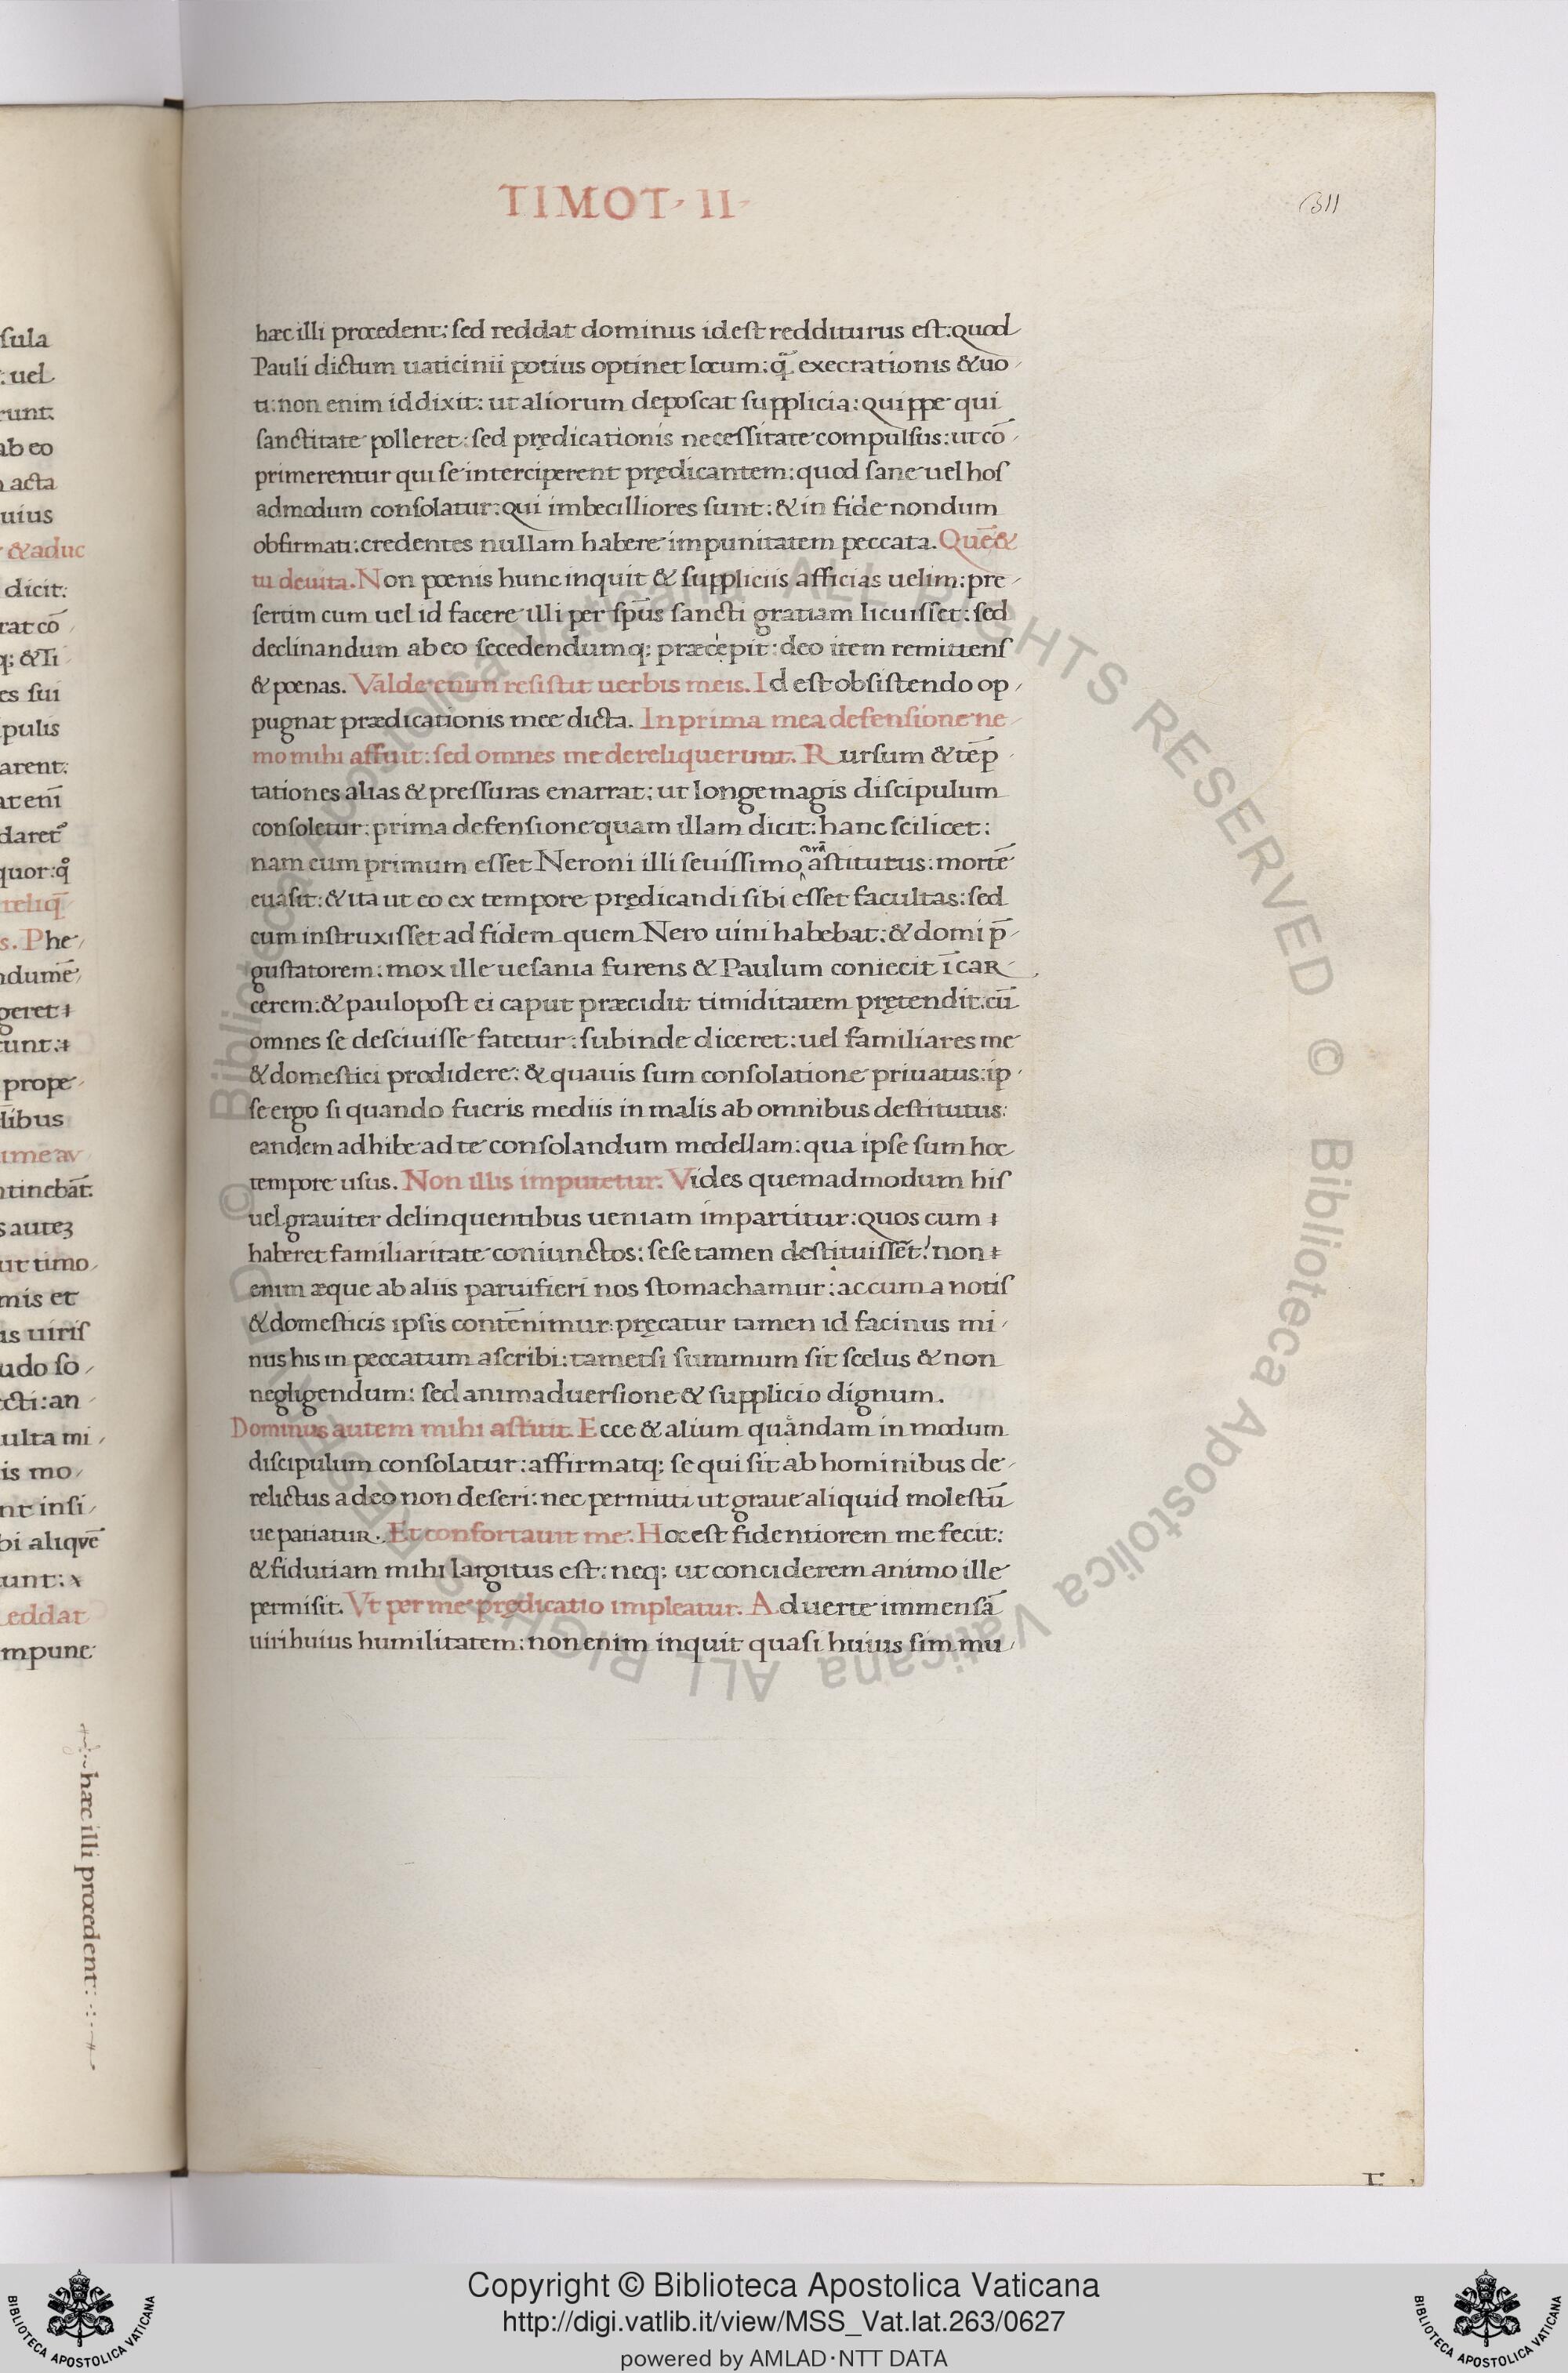 TIMOT · II ·
311
hæc illi prœcedent: sed reddat dominus id est redditurus est: quod
Pauli dictum uaticinii potius optinet locum: q̃ execrationis & uo
ti: non enim id dixit: ut aliorum deposcat supplicia: quippe qui
sanctitate polleret: sed prędicationis necessitate compulsus: ut cō
primerentur qui se interciperent prędicantem: quod sane uel hos
admodum consolatur: qui imbecilliores sunt: & in fide nondum
obfirmati: credentes nullam habere impunitatem peccata. Quē &
tu deuita. Non pœnis hunc inquit & suppliciis afficias uelim: pre
sertim cum uel id facere illi per spūs sancti gratiam licuisset: sed
declinandum ab eo secedendumq; præcepit: deo item remittens
& pœnas. Valde enim resistit uerbis meis. Id est obsistendo op
pugnat prædicationis mee dicta. In prima mea defensione ne
mo mihi affuit: sed omnes me dereliquerunt. Rursum & tēp
tationes alias & pressuras enarrat: ut longe magis discipulum
consoletur: prima defensione quam illam dicit: hanc scilicet:
nam cum primum esset Neroni illi seuissimo corā astitutus: mortē
euasit: & ita ut eo ex tempore prędicandi sibi esset facultas: sed
cum instruxisset ad fidem quem Nero uini habebat: & domi p̄
gustatorem: mox ille uesania furens & Paulum coniecit ī car
cerem: & paulo post ei caput præcidit timiditatem prętendit. cū
omnes se desciuisse fatetur: subinde diceret: uel familiares me
& domestici prodidere: & quauis sum consolatione priuatus: ip
se ergo si quando fueris mediis in malis ab omnibus destitutus:
eandem adhibe ad te consolandum medellam: qua ipse sum hoc
tempore usus. Non illis imputetur. Vides quemadmodum his
uel grauiter delinquentibus ueniam impartitur: quos cum
haberet familiaritate coniunctos: sese tamen destituissēt: non
enim æque ab aliis paruifieri nos stomachamur: ac cum a notis
& domesticis ipsis contēnimur: pręcatur tamen id facinus mi
nus his in peccatum ascribi: tametsi summum sit scelus & non
negligendum: sed animaduersione & supplicio dignum.
Dominus autem mihi astitit. Ecce & alium quandam in modum
discipulum consolatur: affirmatq; se qui sit ab hominibus de
relictus a deo non deseri: nec permitti ut graue aliquid molestū
ue patiatur. Et confortauit me. Hoc est fidentiorem me fecit:
& fidutiam mihi largitus est: neq; ut conciderem animo ille
permisit. Vt per me prędicatio impleatur. Aduerte immensā
uiri huius humilitatem: non enim inquit quasi huius sim mu
hæc illi prœcedent:
Copyright © Biblioteca Apostolica Vaticana
http://digi.vatlib.it/view/MSS_Vat.lat.263/0627
powered by AMLAD·NTT DATA
BIBLIOTECA APOSTOLICA VATICANA
BIBLIOTECA APOSTOLICA VATICANA
© Biblioteca Apostolica Vaticana ALL RIGHTS RESERVED
© Biblioteca Apostolica Vaticana ALL RIGHTS RESERVED